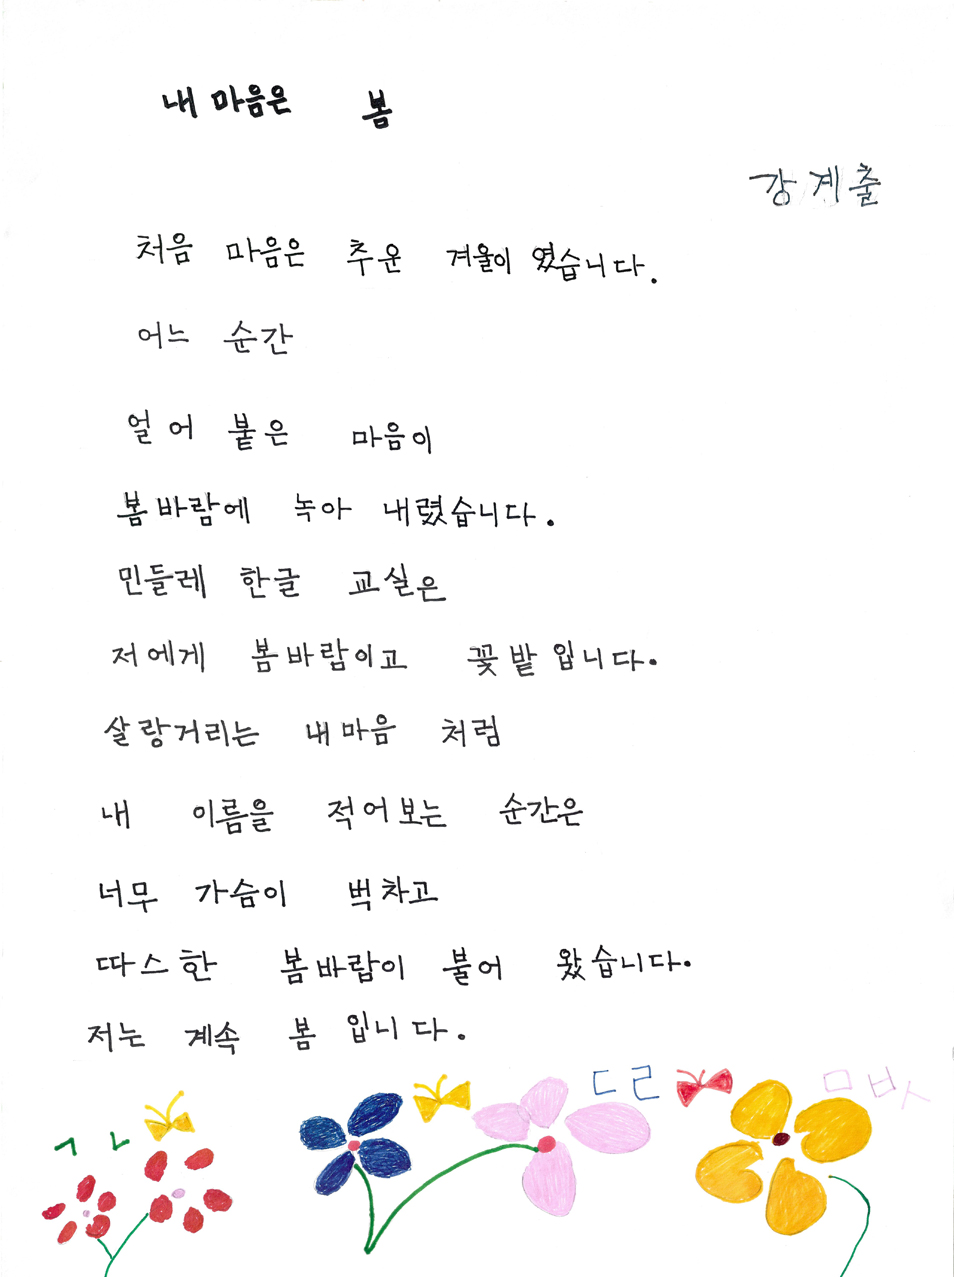 내 마음은 봄
강계출
처음 마음은 추운 겨울이 였습니다.
어느 순간
얼어 붙은 마음이
봄바람에 녹아 내렸습니다.
민들레 한글 교실은
저에게 봄바람이고 꽃밭입니다.
살랑거리는 내마음 처럼
내 이름을 적어보는 순간은
너무 가슴이 벅차고
따스한 봄바람이 불어 왔습니다.
저는 계속 봄 입니다.
ㄱㄴ ㄷㄹ ㅁㅂㅅ